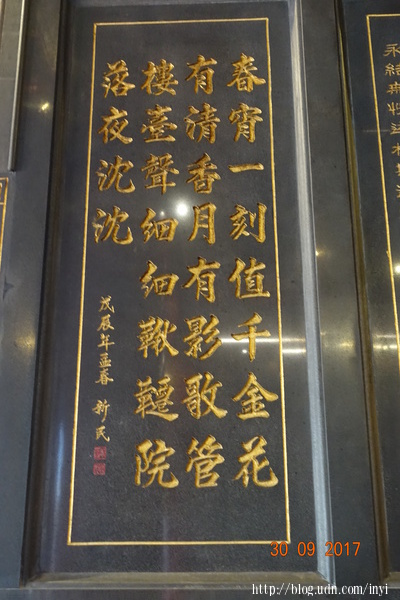 永結無情遊相
春宵一刻值千金花
有清香月有影歌管
樓臺聲細細鞦韆院
落夜沈沈
戊辰年孟春 新民
30 09 2017
http://blog.udn.com/inyi